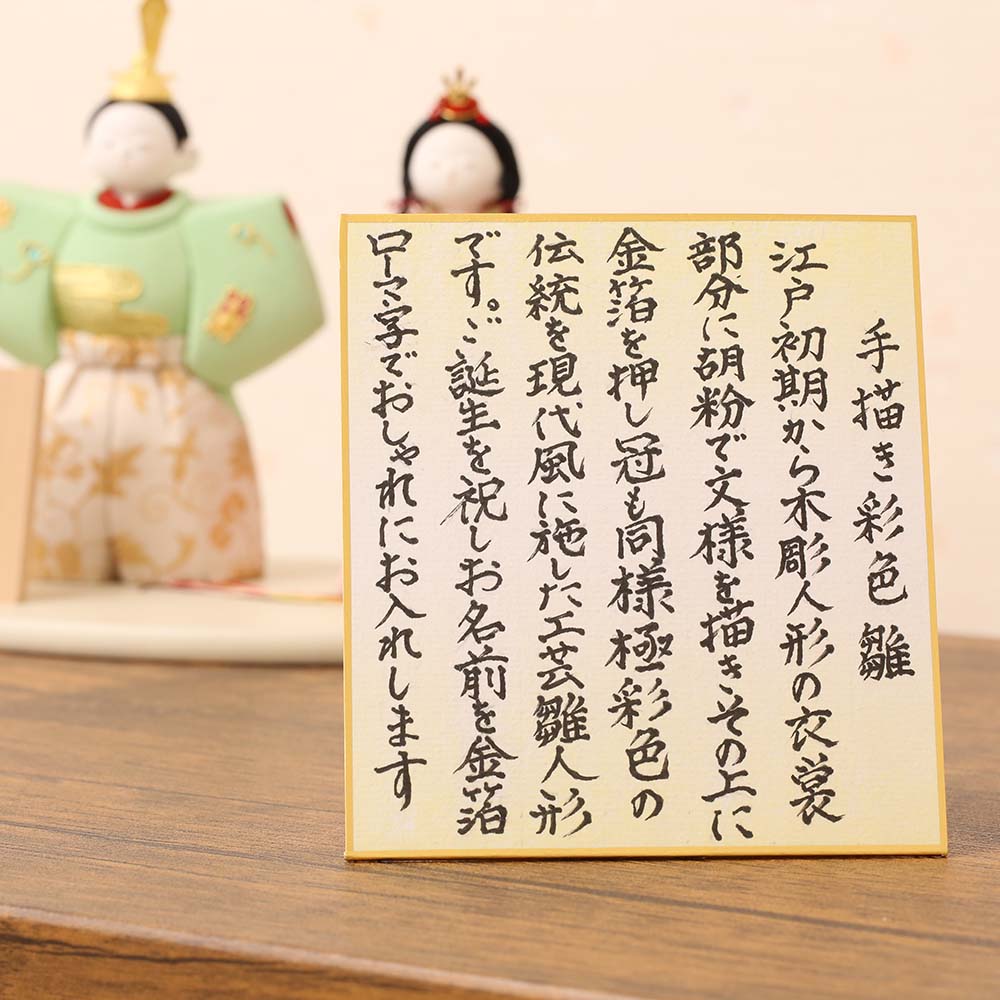 手描き彩色雛
江戸初期から木彫人形の衣裳
部分に胡粉で文様を描きその上に
金箔を押し冠も同様極彩色の
伝統を現代風に施した工芸雛人形
です。ご誕生を祝しお名前を金箔
ローマ字でおしゃれにお入れします